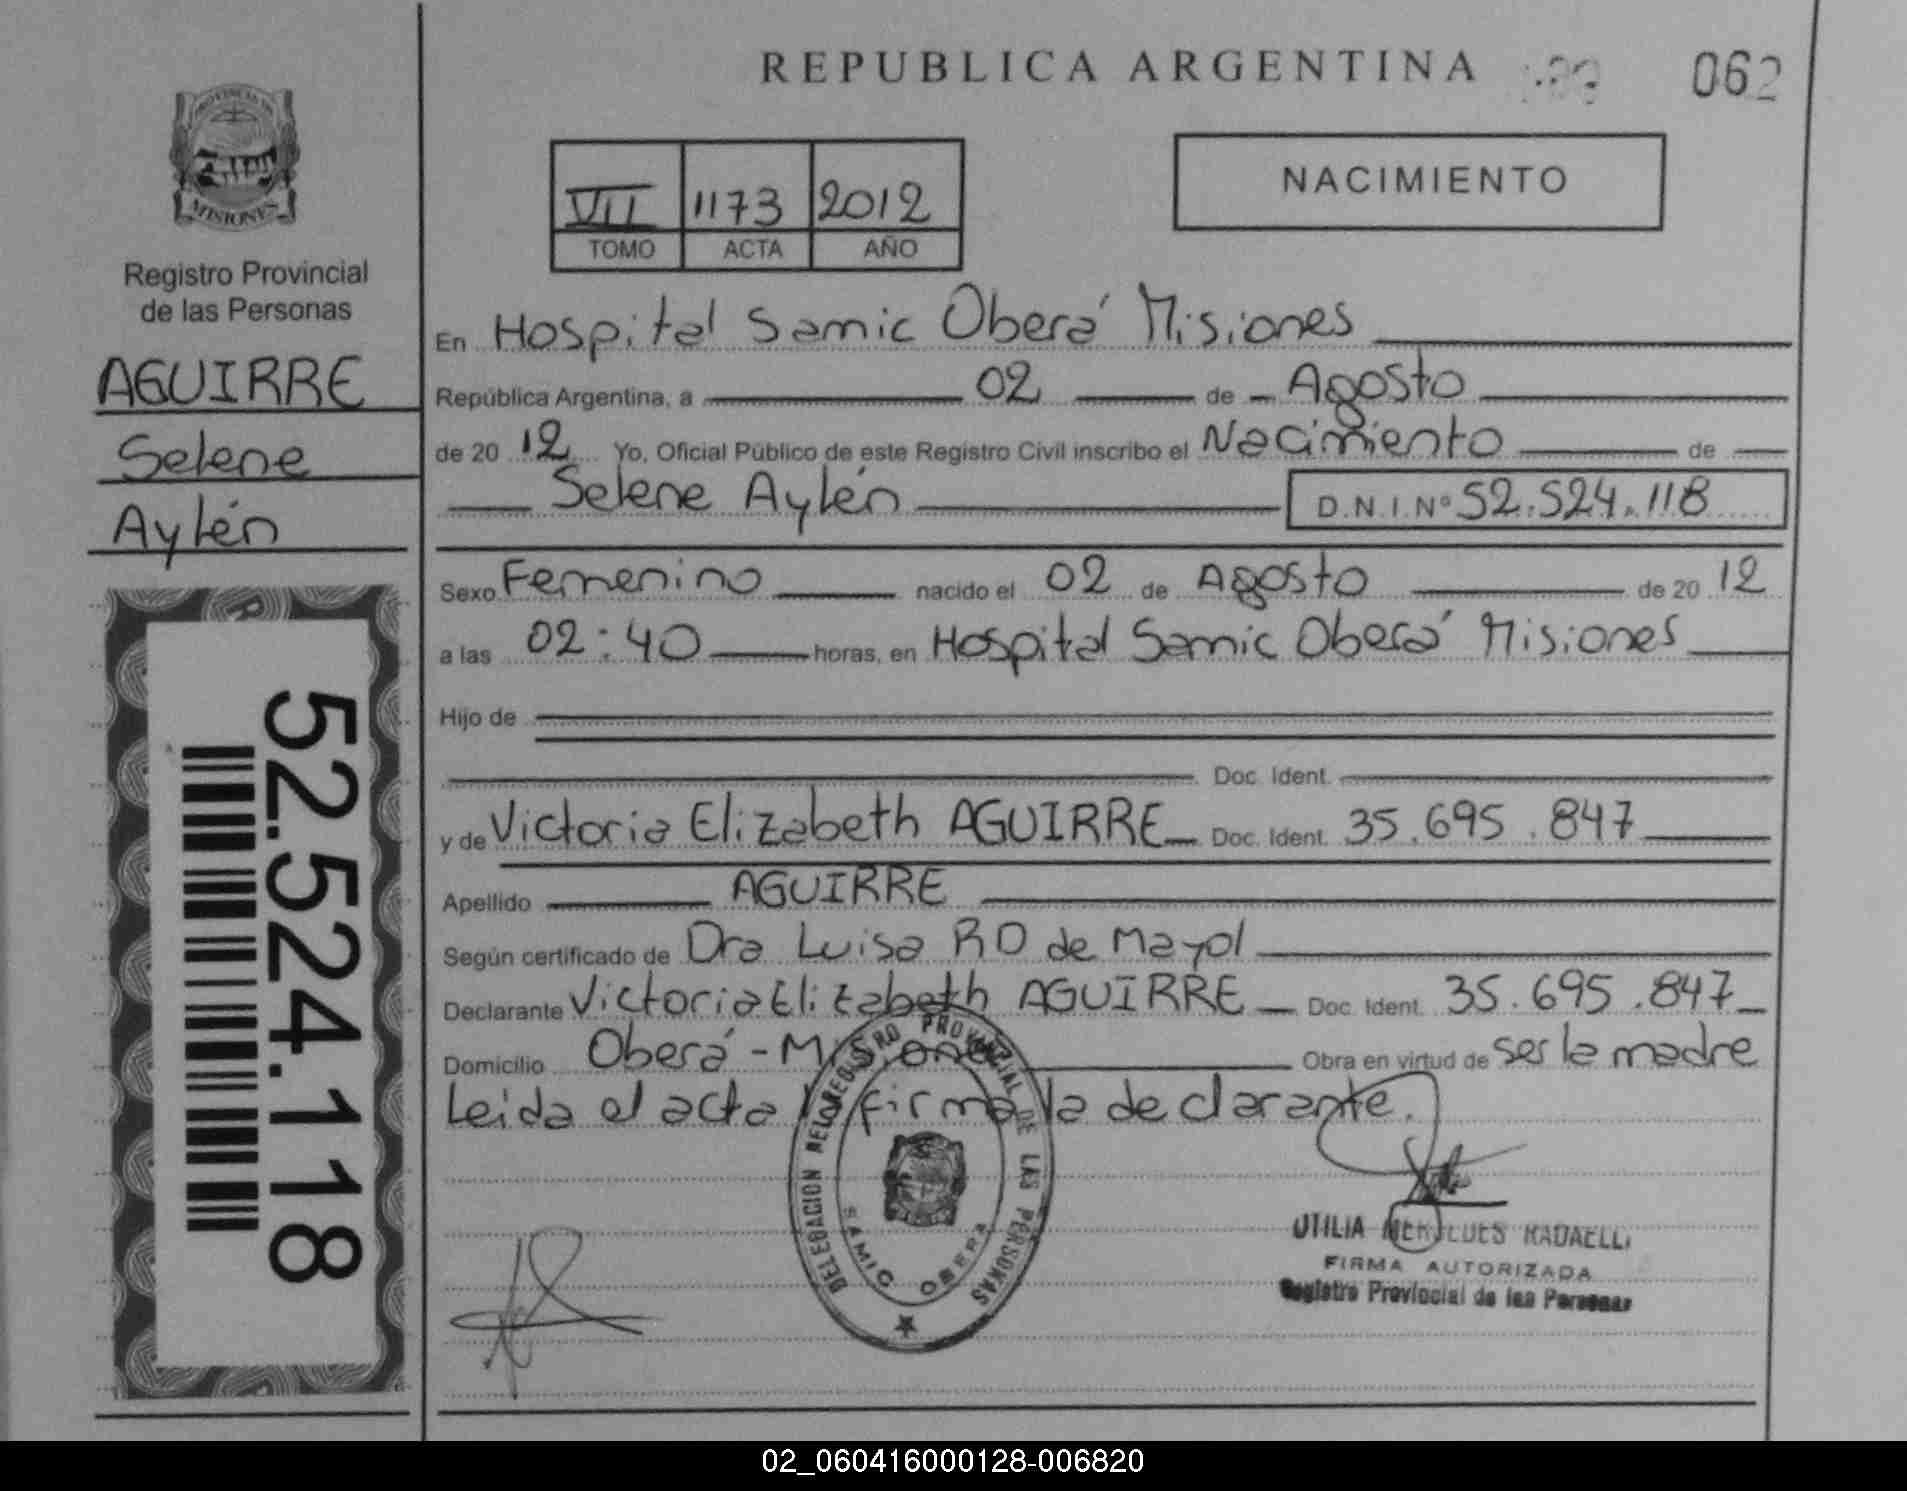 REPUBLICA ARGENTINA
062
PROVINCIA DE
MISIONES
Registro Provincial
de las Personas
AGUIRRE
Selene
Aylén
52.524.118
VII 1173 2012
TOMO ACTA AÑO
NACIMIENTO
En Hospital Samic Oberá Misiones
República Argentina, a 02 de Agosto
de 20 12 Yo, Oficial Público de este Registro Civil inscribo el Nacimiento de
Selene Aylén D.N.I.Nº 52.524.118
Sexo Femenino nacido el 02 de Agosto de 20 12
a las 02:40 horas, en Hospital Samic Oberá Misiones
Hijo de
Doc. Ident.
y de Victoria Elizabeth AGUIRRE Doc. Ident. 35.695.847
Apellido AGUIRRE
Según certificado de Dra Luisa RD de Mayol
Declarante Victoria Elizabeth AGUIRRE Doc. Ident. 35.695.847
Domicilio Oberá - Misiones Obra en virtud de ser la madre
Leida el acta firma la declarante.
DELEGACION REGISTRO PROVINCIAL DE LAS PERSONAS
SAMIC OBERA
OTILIA MERCEDES RADAELLI
FIRMA AUTORIZADA
Registro Provincial de las Personas
02_060416000128-006820